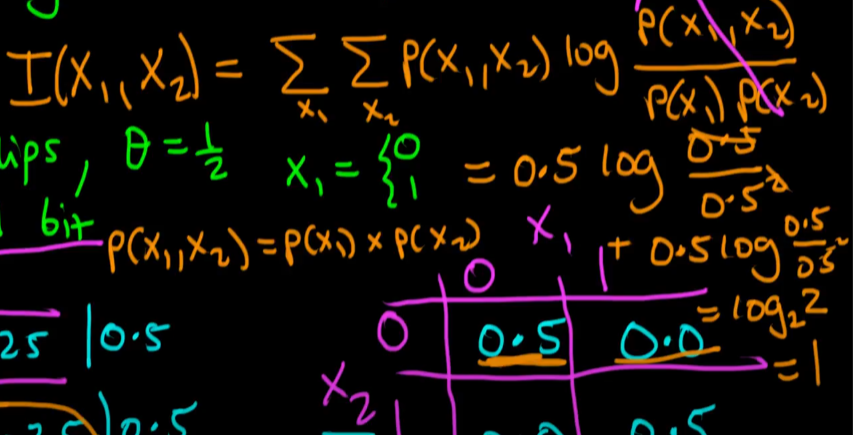 I(X₁,X₂) = Σ_{X₁} Σ_{X₂} P(X₁,X₂) log P(X₁,X₂) / P(X₁) P(X₂)
ips, θ = 1/2 X₁ = { 0 1 = 0.5 log 0.5 / 0.5²
bit
P(X₁,X₂) = P(X₁) × P(X₂) X₁ + 0.5 log 0.5 / 0.5²
0 1
= log₂ 2
25 | 0.5 0 0.5 0.0
= 1
X₂
0.5 1 0.5